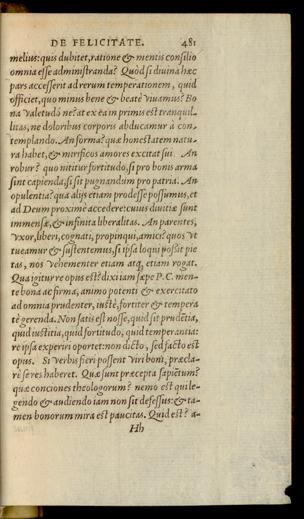 DE FELICITATE. 481
melius: quis dubitet, ratione & mentis consilio
omnia esse administranda? Quòd si diuina hæc
pars accesserit ad rerum temperationem, quid
officiet, quo minus bene & beatè viuamus? Bo
na valetudo ne? at ex ea in primis est tranquil-
litas, ne doloribus corporis abducamur à con-
templando. An forma? quæ honestatem natu-
ra habet, & mirificos amores excitat sui. An
robur? quo nititur fortitudo, si pro bonis arma
sint capienda, si sit pugnandum pro patria. An
opulentia? qua alijs etiam prodesse possumus, et
ad Deum proximè accedere: cuius diuitiæ sunt
immensæ, & infinita liberalitas. An parentes,
vxor, liberi, cognati, propinqui, amici? quos vt
tueamur & sustentemus, si ipsa loqui possit pie
tas, nos vehementer etiam atq, etiam rogat.
Qua igitur re opus est? dixi iam sæpe P. C. men-
te bona ac firma, animo potenti & exercitato
ad omnia prudenter, iustè, fortiter & tempera
tè gerenda. Non satis est nosse, quid sit prudẽtia,
quid iustitia, quid fortitudo, quid temperantia:
re ipsa experiri oportet: non dicto, sed facto est
opus. Si verbis fieri possent viri boni, præcla-
rè se res haberet. Quæ sunt præcepta sapiẽtum?
quæ conciones theologorum? nemo est qui le-
gendo & audiendo iam non sit defessus: & ta-
men bonorum mira est paucitas. Quid est? a-
Hh